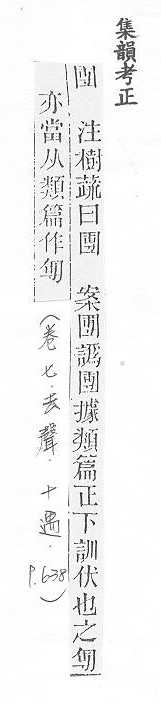 集韻考正
圑 注樹蔬曰圑 案圑譌團據類篇正下訓伏也之
亦當从類篇作
(卷七·去聲·十遇·P.638)